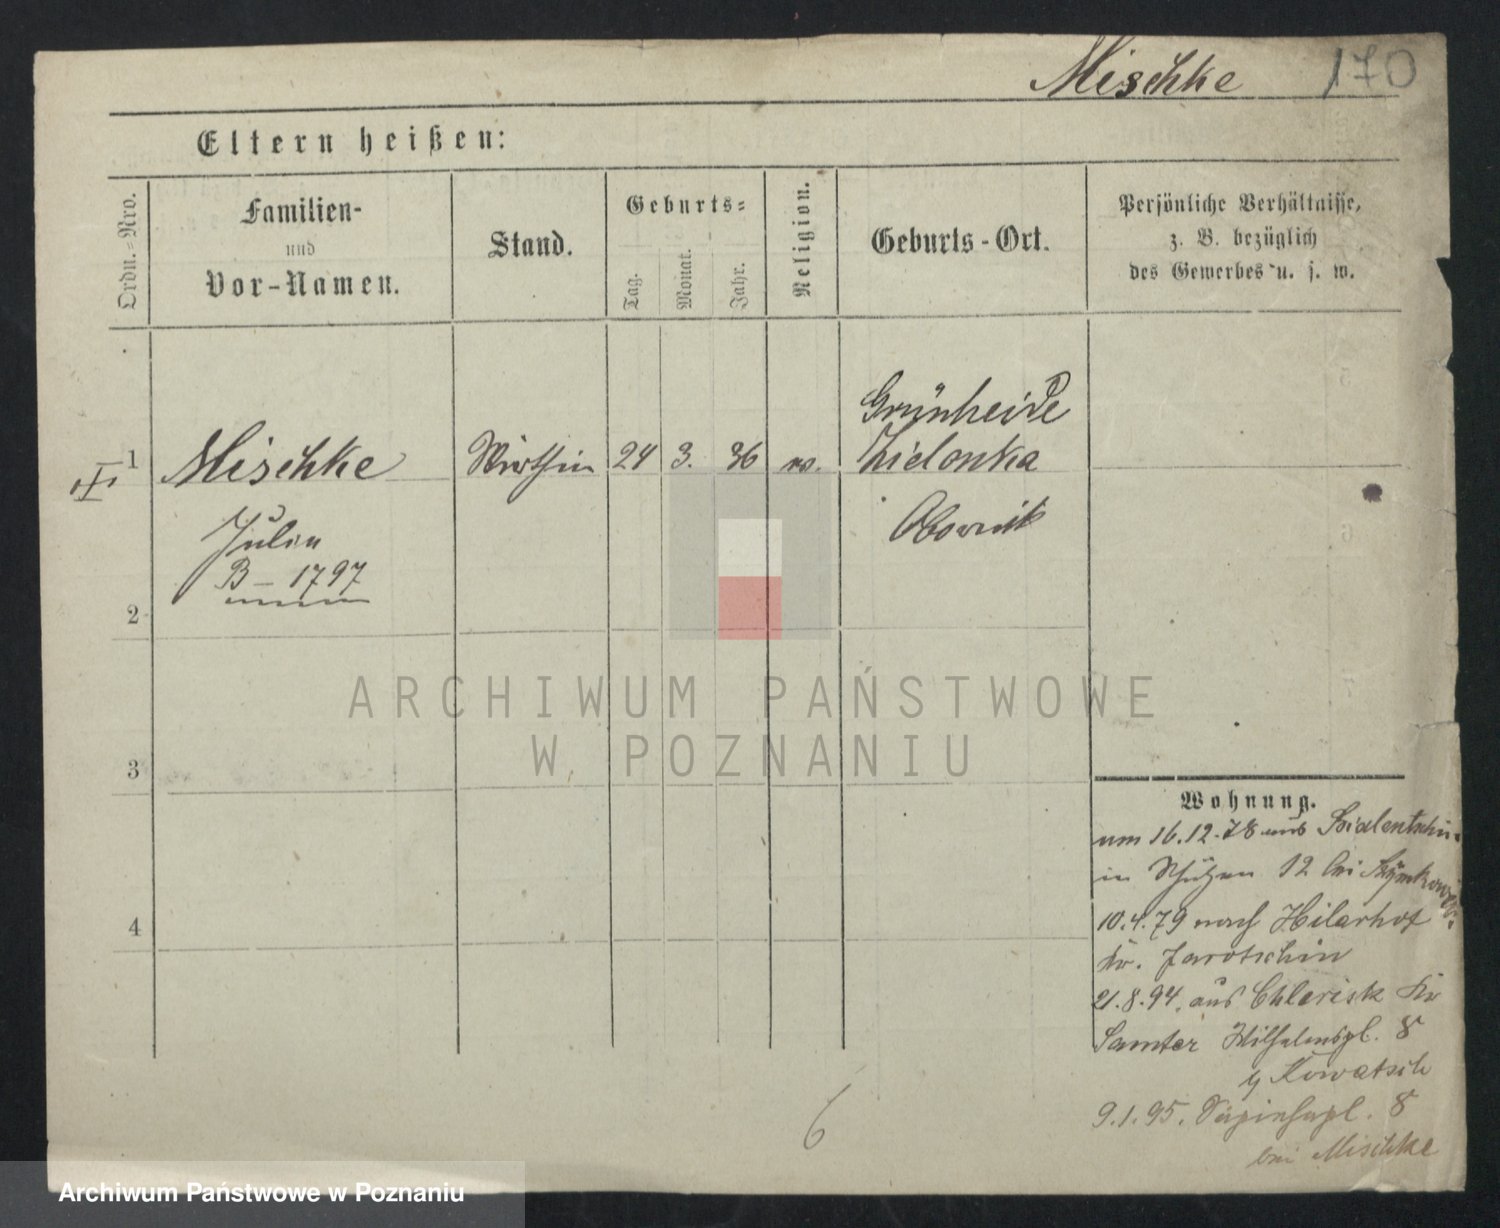 Mischke 170
Eltern heißen:
Ordn.-Nro.
Familien-
und
Vor-Namen.
Stand.
Geburts-
Tag.
Monat.
Jahr.
Religion.
Geburts-Ort.
Persönliche Verhältnisse,
z. B. bezüglich
des Gewerbes u. s. w.
Grünheide
1 Mischke Wirthin 24 3. 36 Zielonka
Obornik
B- 1797
2
3
4
ARCHIWUM PAŃSTWOWE
W POZNANIU
Wohnung.
um 16.12.78 aus
in Schützen 12 bei
10.4.79 nach Hilarhof
Kr. Jarotschin
21.8.94. aus Kr
Samter Wilhelmspl. 8
Kowatsch
9.1.95. Sapiehapl. 8
bei Mischke
6
Archiwum Państwowe w Poznaniu